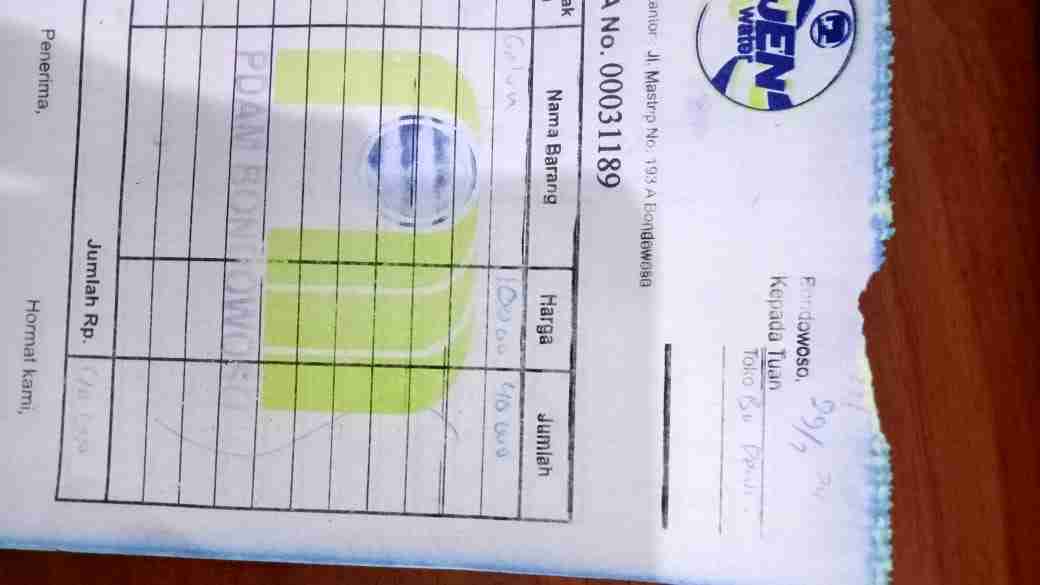 JEN
water
Kantor : Jl. Mastrip No. 193 A Bondowoso
A No. 00031189
Bondowoso, 29/7 24
Kepada Tuan
Toko Bu
ak Nama Barang Harga Jumlah
Galon 10000 40000
PDAM BONDOWOSO
Jumlah Rp.
Penerima, Hormat kami,